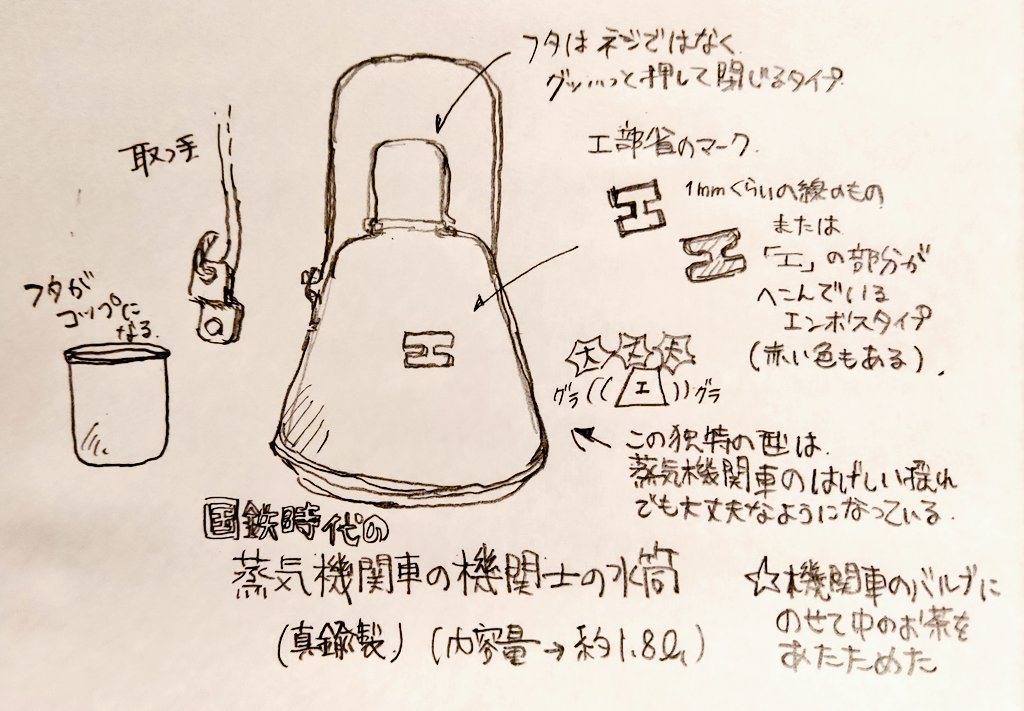 フタはネジではなく
グッ…っと押して閉じるタイプ
取っ手
工部省のマーク.
工
1mmくらいの線のもの
または
工
「工」の部分が
へこんでいる
エンボスタイプ
(赤い色もある).
フタが
コップに
なる.
工
大 大 大
グラ (( 工 )) グラ
この独特の型は.
蒸気機関車のはげしい揺れ
でも大丈夫なようになっている.
国鉄時代の
蒸気機関車の機関士の水筒
(真鍮製) (内容量→約1.8ℓ)
☆機関車のバルブに
のせて中のお茶を
あたためた